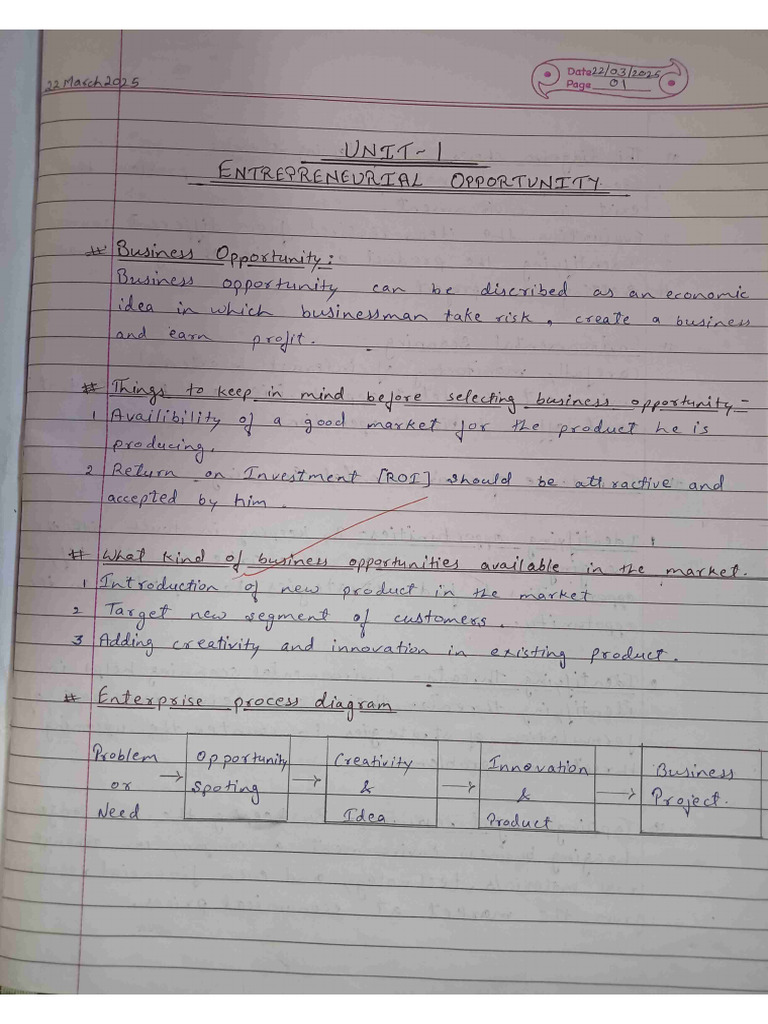 22 March 2025
Date 22/03/2025
Page 01
UNIT-1
ENTREPRENEURIAL OPPORTUNITY
# Business Opportunity:
Business opportunity can be discribed as an economic
idea in which businessman take risk, create a business
and earn profit.
# Things to keep in mind before selecting business opportunity-
1 Availibility of a good market for the product he is
producing.
2 Return on Investment [ROI] should be attractive and
accepted by him.
# What kind of business opportunities available in the market.
1 Introduction of new product in the market
2 Target new segment of customers.
3 Adding creativity and innovation in existing product.
# Enterprise process diagram
Problem or Need → Opportunity Spoting → Creativity & Idea → Innovation & Product → Business Project.